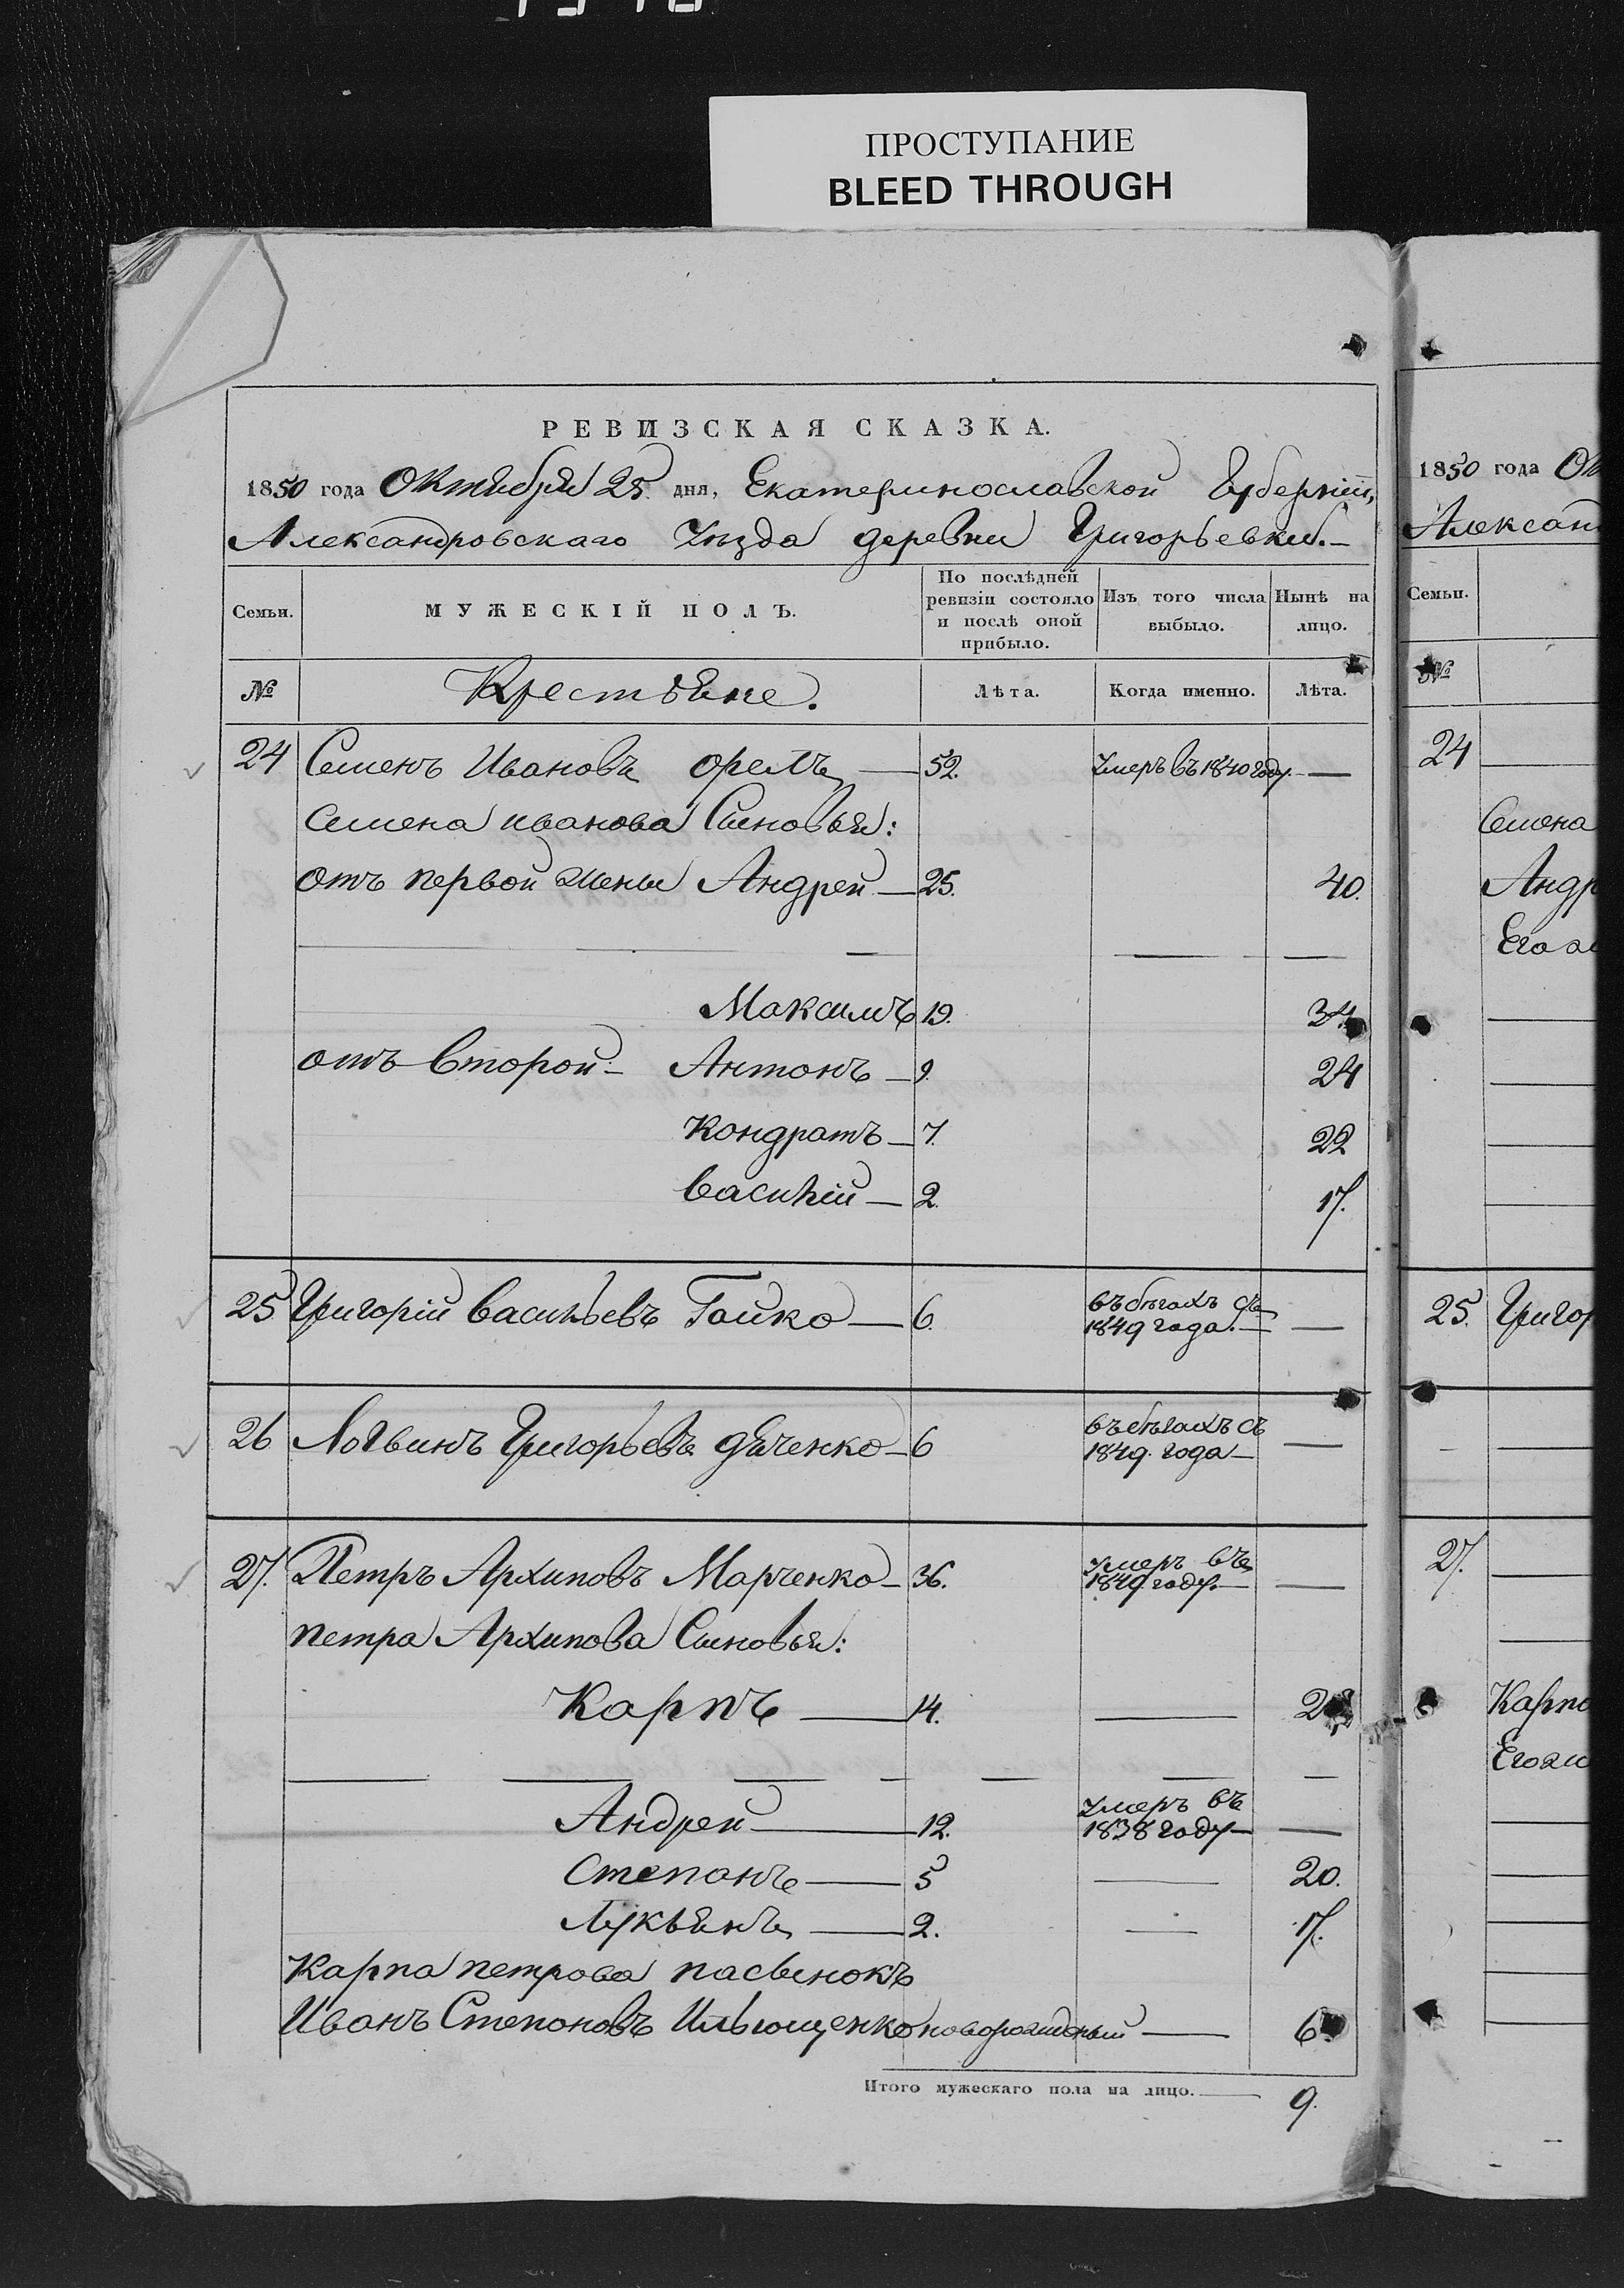 ПРОСТУПАНИЕ
BLEED THROUGH
РЕВИЗСКАЯ СКАЗКА.
1850 года Октября 25. дня, Екатеринославской Губерніи,
Александровскаго Уѣзда деревни Григорьевки.
Семьи. МУЖЕСКІЙ ПОЛЪ. По послѣдней ревизіи состояло и послѣ оной прибыло. Изъ того числа выбыло. Нынѣ на лицо.
№ Крестьяне. Лѣта. Когда именно. Лѣта.
24 Семенъ Ивановъ орелъ — 52. Умеръ въ 1840 году. —
Семена иванова Сыновья:
отъ первой жены Андрей — 25. 40.
Максимъ 19. 34
отъ второй — Антонъ — 9. 24
Кондратъ — 7. 22
василій — 2. 17.
25 Григорій васильевъ Гайко — 6. въ бѣгахъ съ 1849 года. —
26 Логвинъ Григорьевъ дяченко — 6 въ бѣгахъ съ 1849. года —
27. Петръ Архиповъ Марченко — 36. Умеръ въ 1849 году. —
петра Архипова Сыновья:
Карпъ — 14. —
Андрей — 12. Умеръ въ 1838 году —
Степанъ — 5 — 20.
Лукьянъ — 2. — 17.
Карпа петрова пасынокъ
Иванъ Степановъ Ильющенко новорожденый — 6
Итого мужескаго пола на лицо. — 9.
1850 года
Семьи.
№
24
Семена
25. Григор
27.